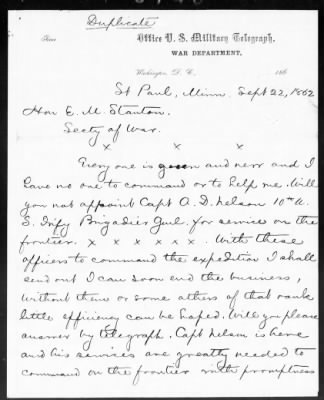 Duplicate
Office U. S. Military Telegraph,
WAR DEPARTMENT,
Washington, D. C., 186
St Paul, Minn. Sept 22, 1862
Hon E. M. Stanton.
Secty of War.
x x x
Every one is green and new and I
have no one to command or to help me. Will
you not appoint Capt A. D. Nelson 10th U.
S. Infy Brigadier Genl. for service on the
frontier. x x x x x x. With these
officers to command the expedition I shall
send out I can soon end the business,
without them or some others of that rank
little efficiency can be hoped. Will you please
answer by telegraph. Capt Nelson is here
and his services are greatly needed to
command on the frontier with promptness